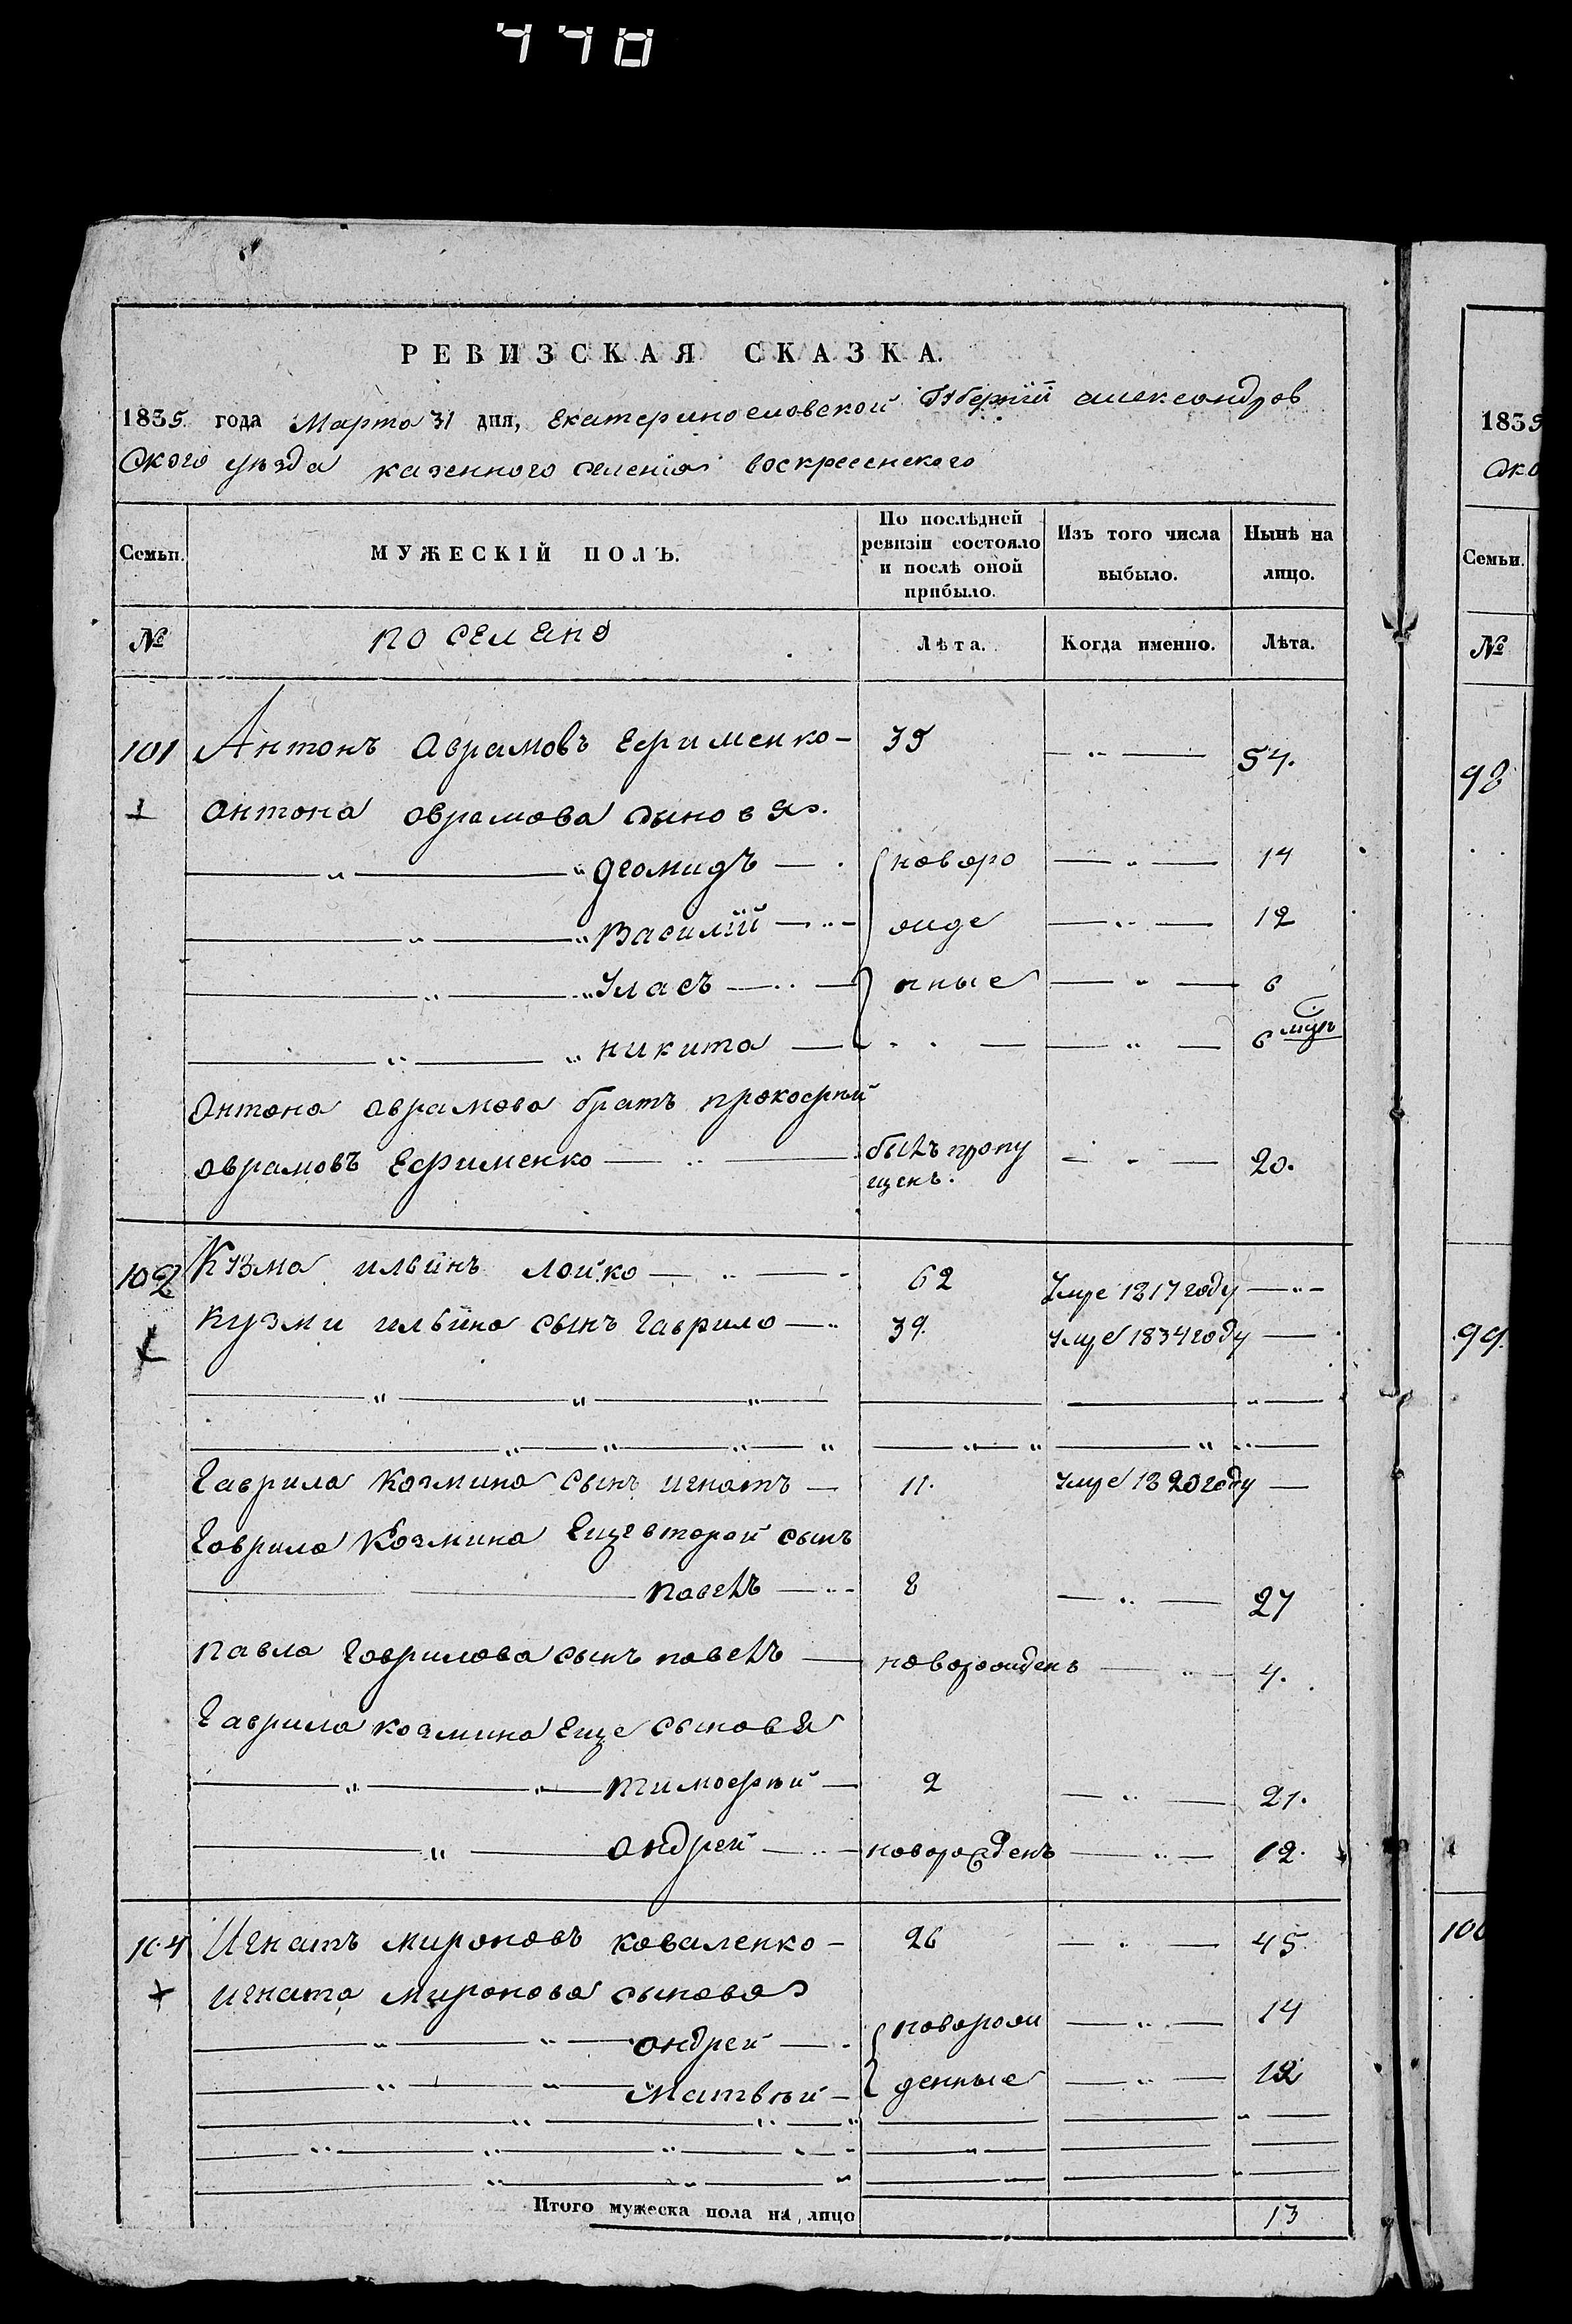 770
РЕВИЗСКАЯ СКАЗКА.
1835. года Марта 31 дня, Екатеринославской Губернїй александров
Ского уезда казенного селения воскресенского
Семьи.
МУЖЕСКІЙ ПОЛЪ.
По послѣдней ревизіи состояло и послѣ оной прибыло.
Изъ того числа выбыло.
Нынѣ на лицо.
№
поселянъ
Лѣта.
Когда именно.
Лѣта.
101 Антонъ аврамовъ Ефименко 35 54.
антона аврамова сыновя
диомидъ новоро 14
Василїй жде 12
Уласъ нные 6
никита 6
Антона аврамова братъ прокофій
аврамовъ Ефименко былъ пропу щенъ. 20.
102 Кузма ильинъ лойко 62 Умре 1817 году
кузми ильина сынъ гаврило 39. умре 1834 году
гаврила козмина сынъ игнатъ 11. умре 1820 году
гаврила козмина Еще второй сынъ
павелъ 8 27
павла гаврилова сынъ павелъ новорожденъ 4.
гаврила козмина еще сыновя
тимофѣй 2 21.
андрей новорожденъ 12.
104 Игнатъ мироновъ коваленко 26 45
игната миронова сыновя
андрей новорож 14
Матвѣй денные 12
Итого мужеска пола на лицо 13
1835
Ско
Семьи.
№
98
99.
100